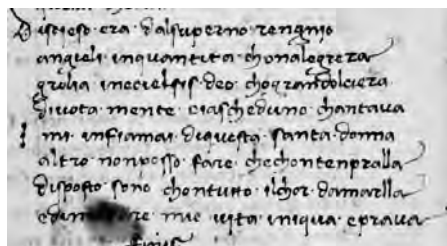 Discieso · era · dalsuperno · rengnio
angieli · inquantita · chonalegreza
grolia · inecielsis · deo · chograndolcieza
divota · mente · ciascheduno · chantava
mi · infiamai · diquesta · santa · donna
altro · nonposso · fare · chechontenpralla
disposto · sono · chontutto · ilchor · damarlla
mie · vita · iniqua · eprava
finis